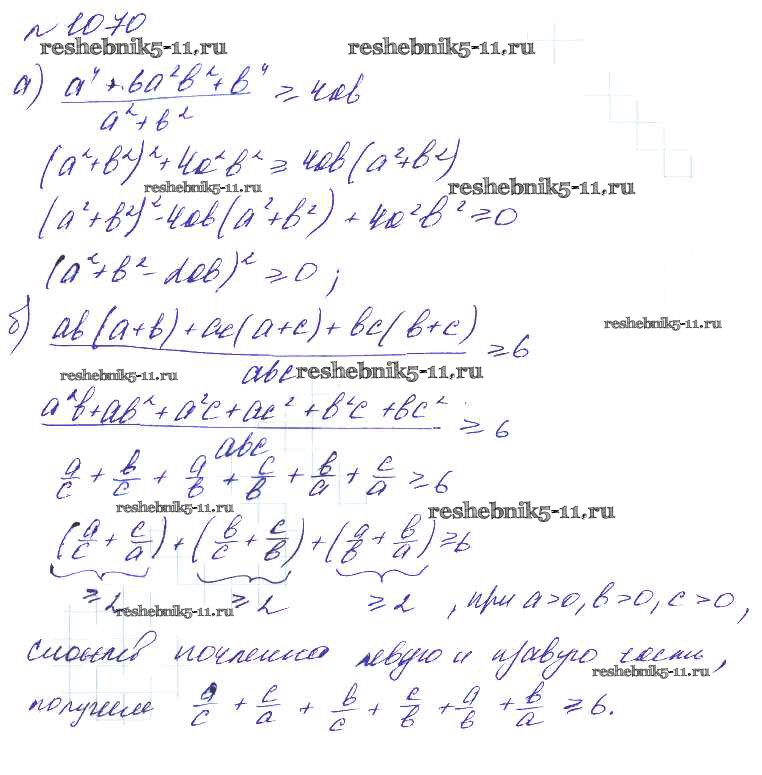 № 1070
reshebnik5-11.ru reshebnik5-11.ru
а) (a⁴ + 6a²b² + b⁴)/(a² + b²) ≥ 4ab
(a²+b²)² + 4a²b² ≥ 4ab(a²+b²)
reshebnik5-11.ru reshebnik5-11.ru
(a²+b²)² - 4ab(a²+b²) + 4a²b² ≥ 0
(a²+b²-2ab)² ≥ 0;
б) (ab(a+b)+ac(a+c)+bc(b+c))/abc ≥ 6
reshebnik5-11.ru
reshebnik5-11.ru reshebnik5-11.ru
(a²b+ab²+a²c+ac²+b²c+bc²)/abc ≥ 6
a/c + b/c + a/b + c/b + b/a + c/a ≥ 6
reshebnik5-11.ru reshebnik5-11.ru
(a/c + c/a) + (b/c + c/b) + (a/b + b/a) ≥ 6
≥2 ≥2 ≥2, при a>0, b>0, c>0,
reshebnik5-11.ru
сложив почленно левую и правую части,
reshebnik5-11.ru
получим a/c + c/a + b/c + c/b + a/b + b/a ≥ 6.